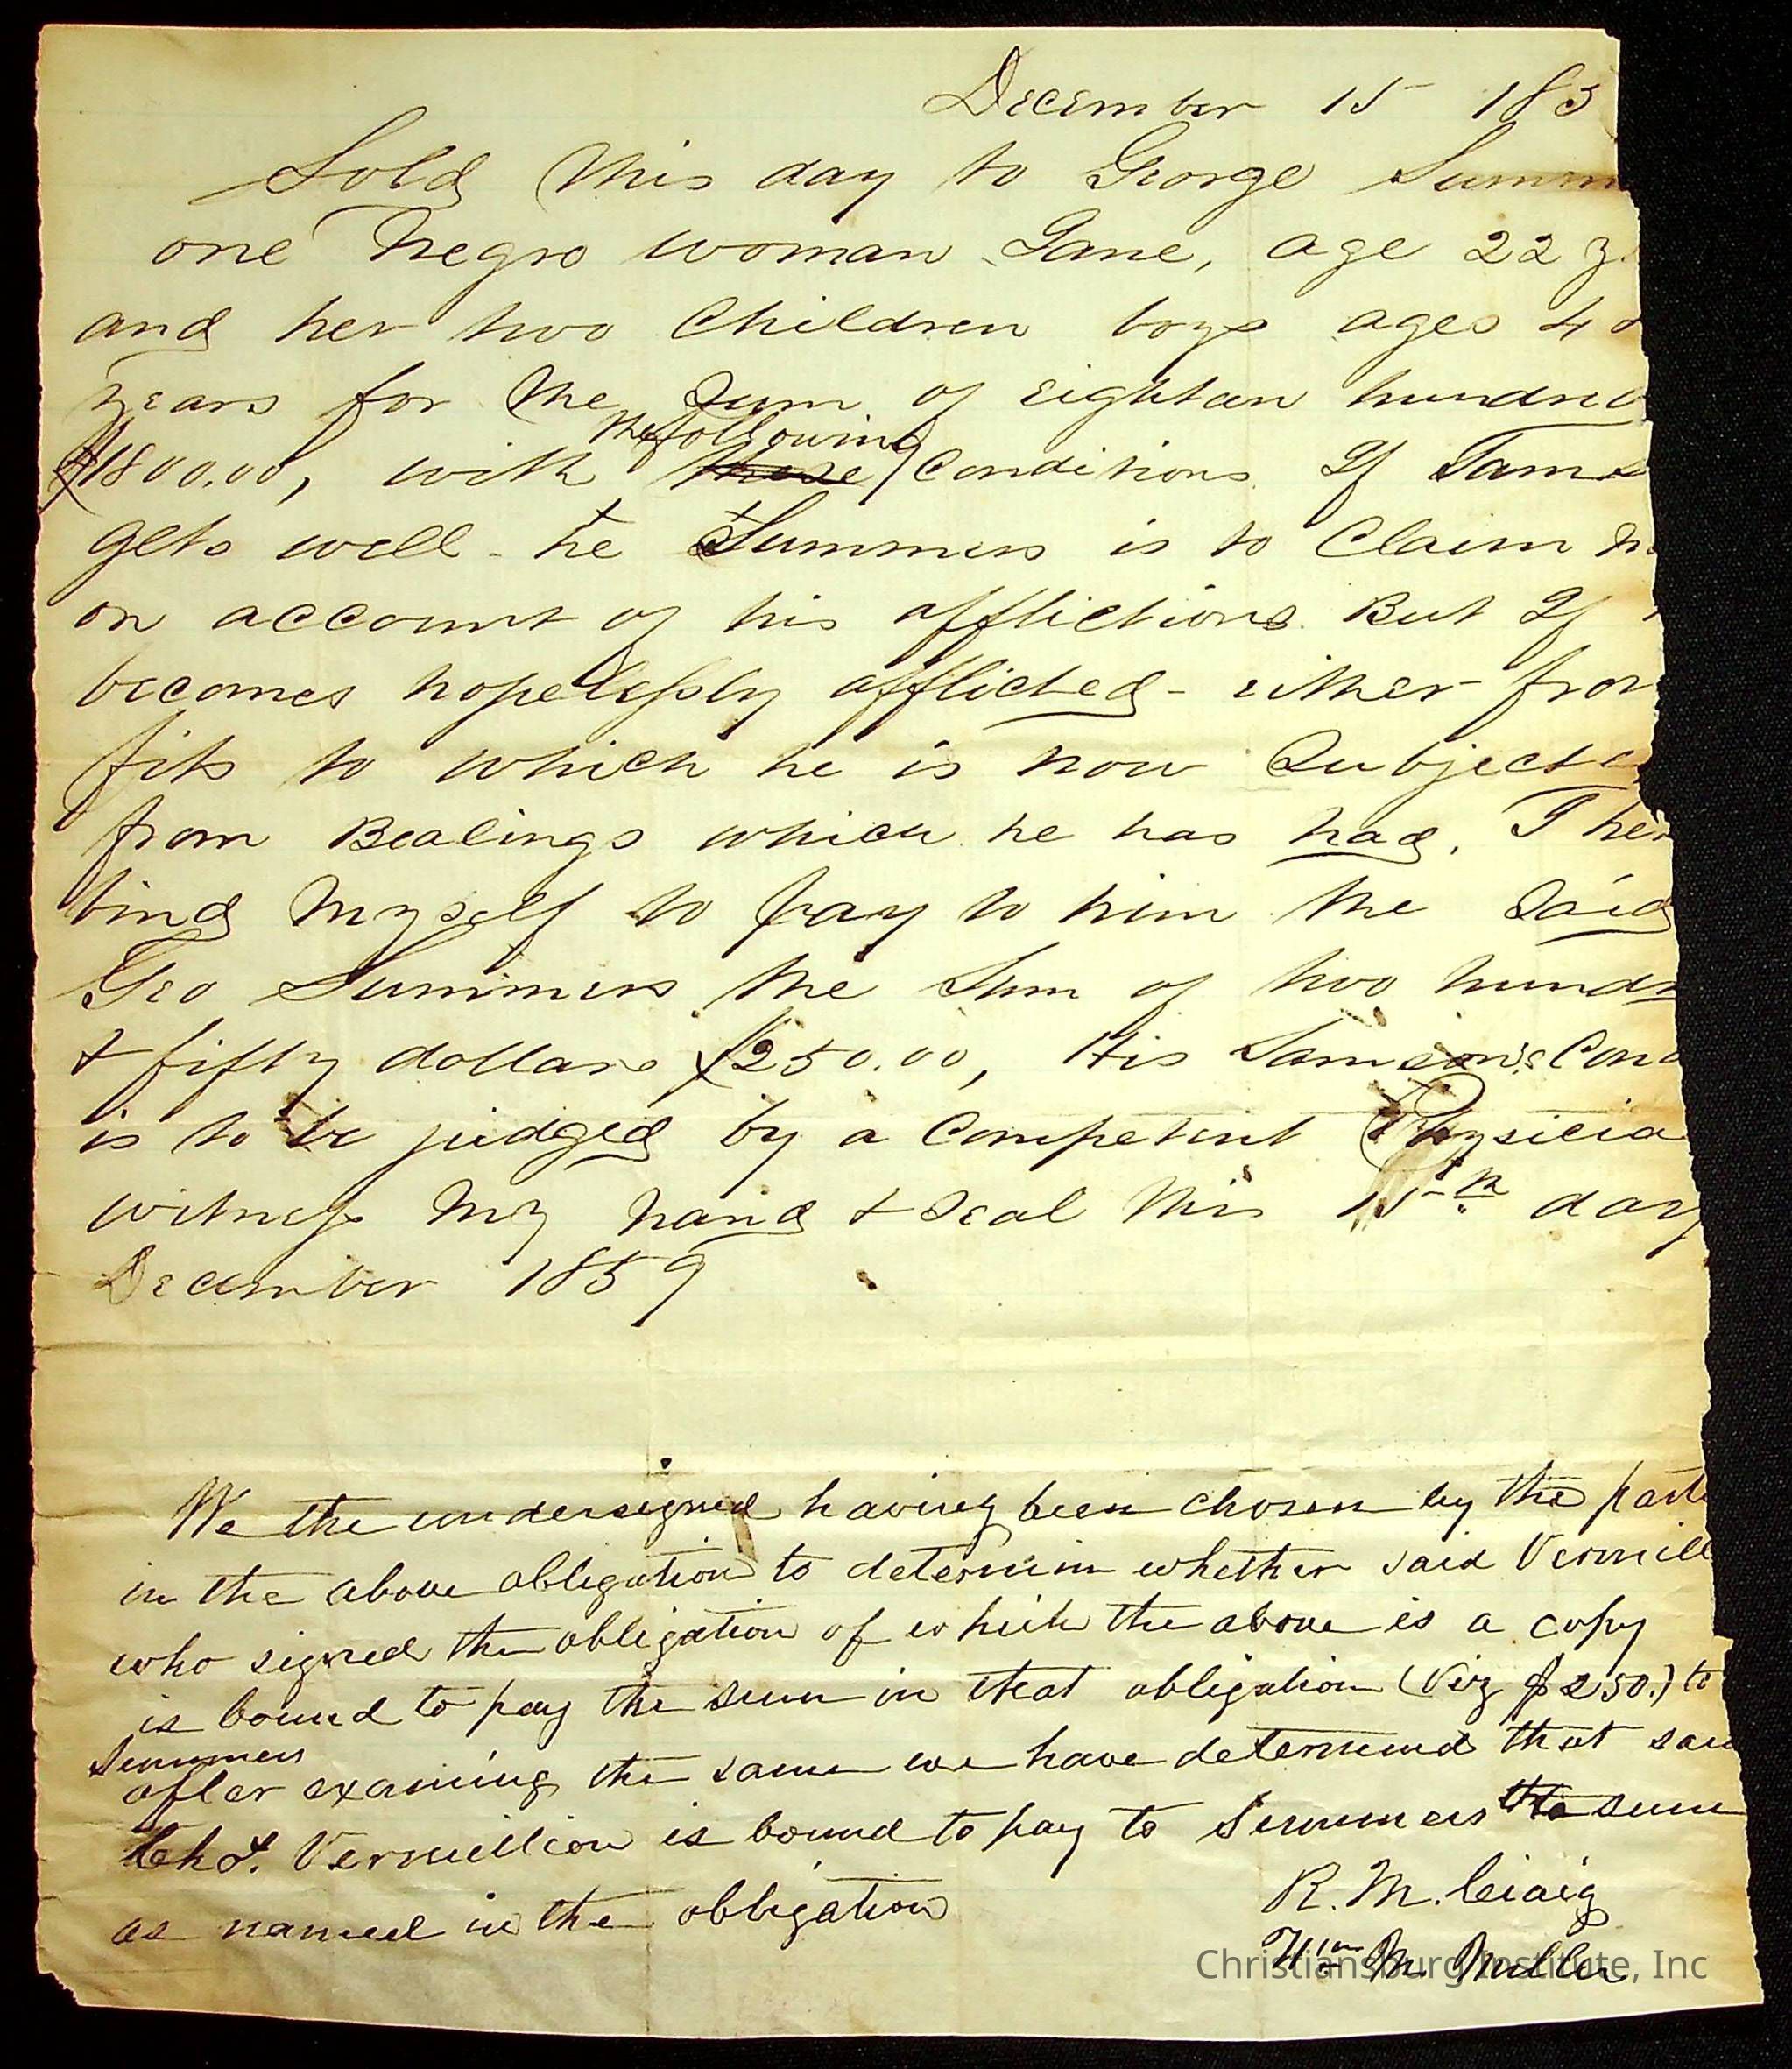 December 15 185
Sold this day to George Summ
one Negro woman Jane, age 22 y
and her two Children boys ages 4
years for the Sum of eighteen hundred
the following
$1800.00, with these Conditions If Sams
gets well - he Summers is to Claim
on account of his afflictions. But If
becomes hopelessly afflicted - either from
fits to which he is now Subject
from Bealings which he has had. I her
bind myself to pay to him the Said
Geo Summers the Sum of two hundr
& fifty dollars $250.00, His Samson's Cond
is to be judged by a Competent Physicia
witness my hand & seal this 15th day
December 1859
We the undersigned having been chosen by the parti
in the above obligation to determin whether said Vermill
who signed the obligation of which the above is a copy
is bound to pay the sum in that obligation (Viz $250.) to
Summers
after examining the same we have determind that said
Chs. Vermillion is bound to pay to Summers the sum
as named in the obligation
R. M. Craig
Wm M. Miller
Christiansburg Institute, Inc